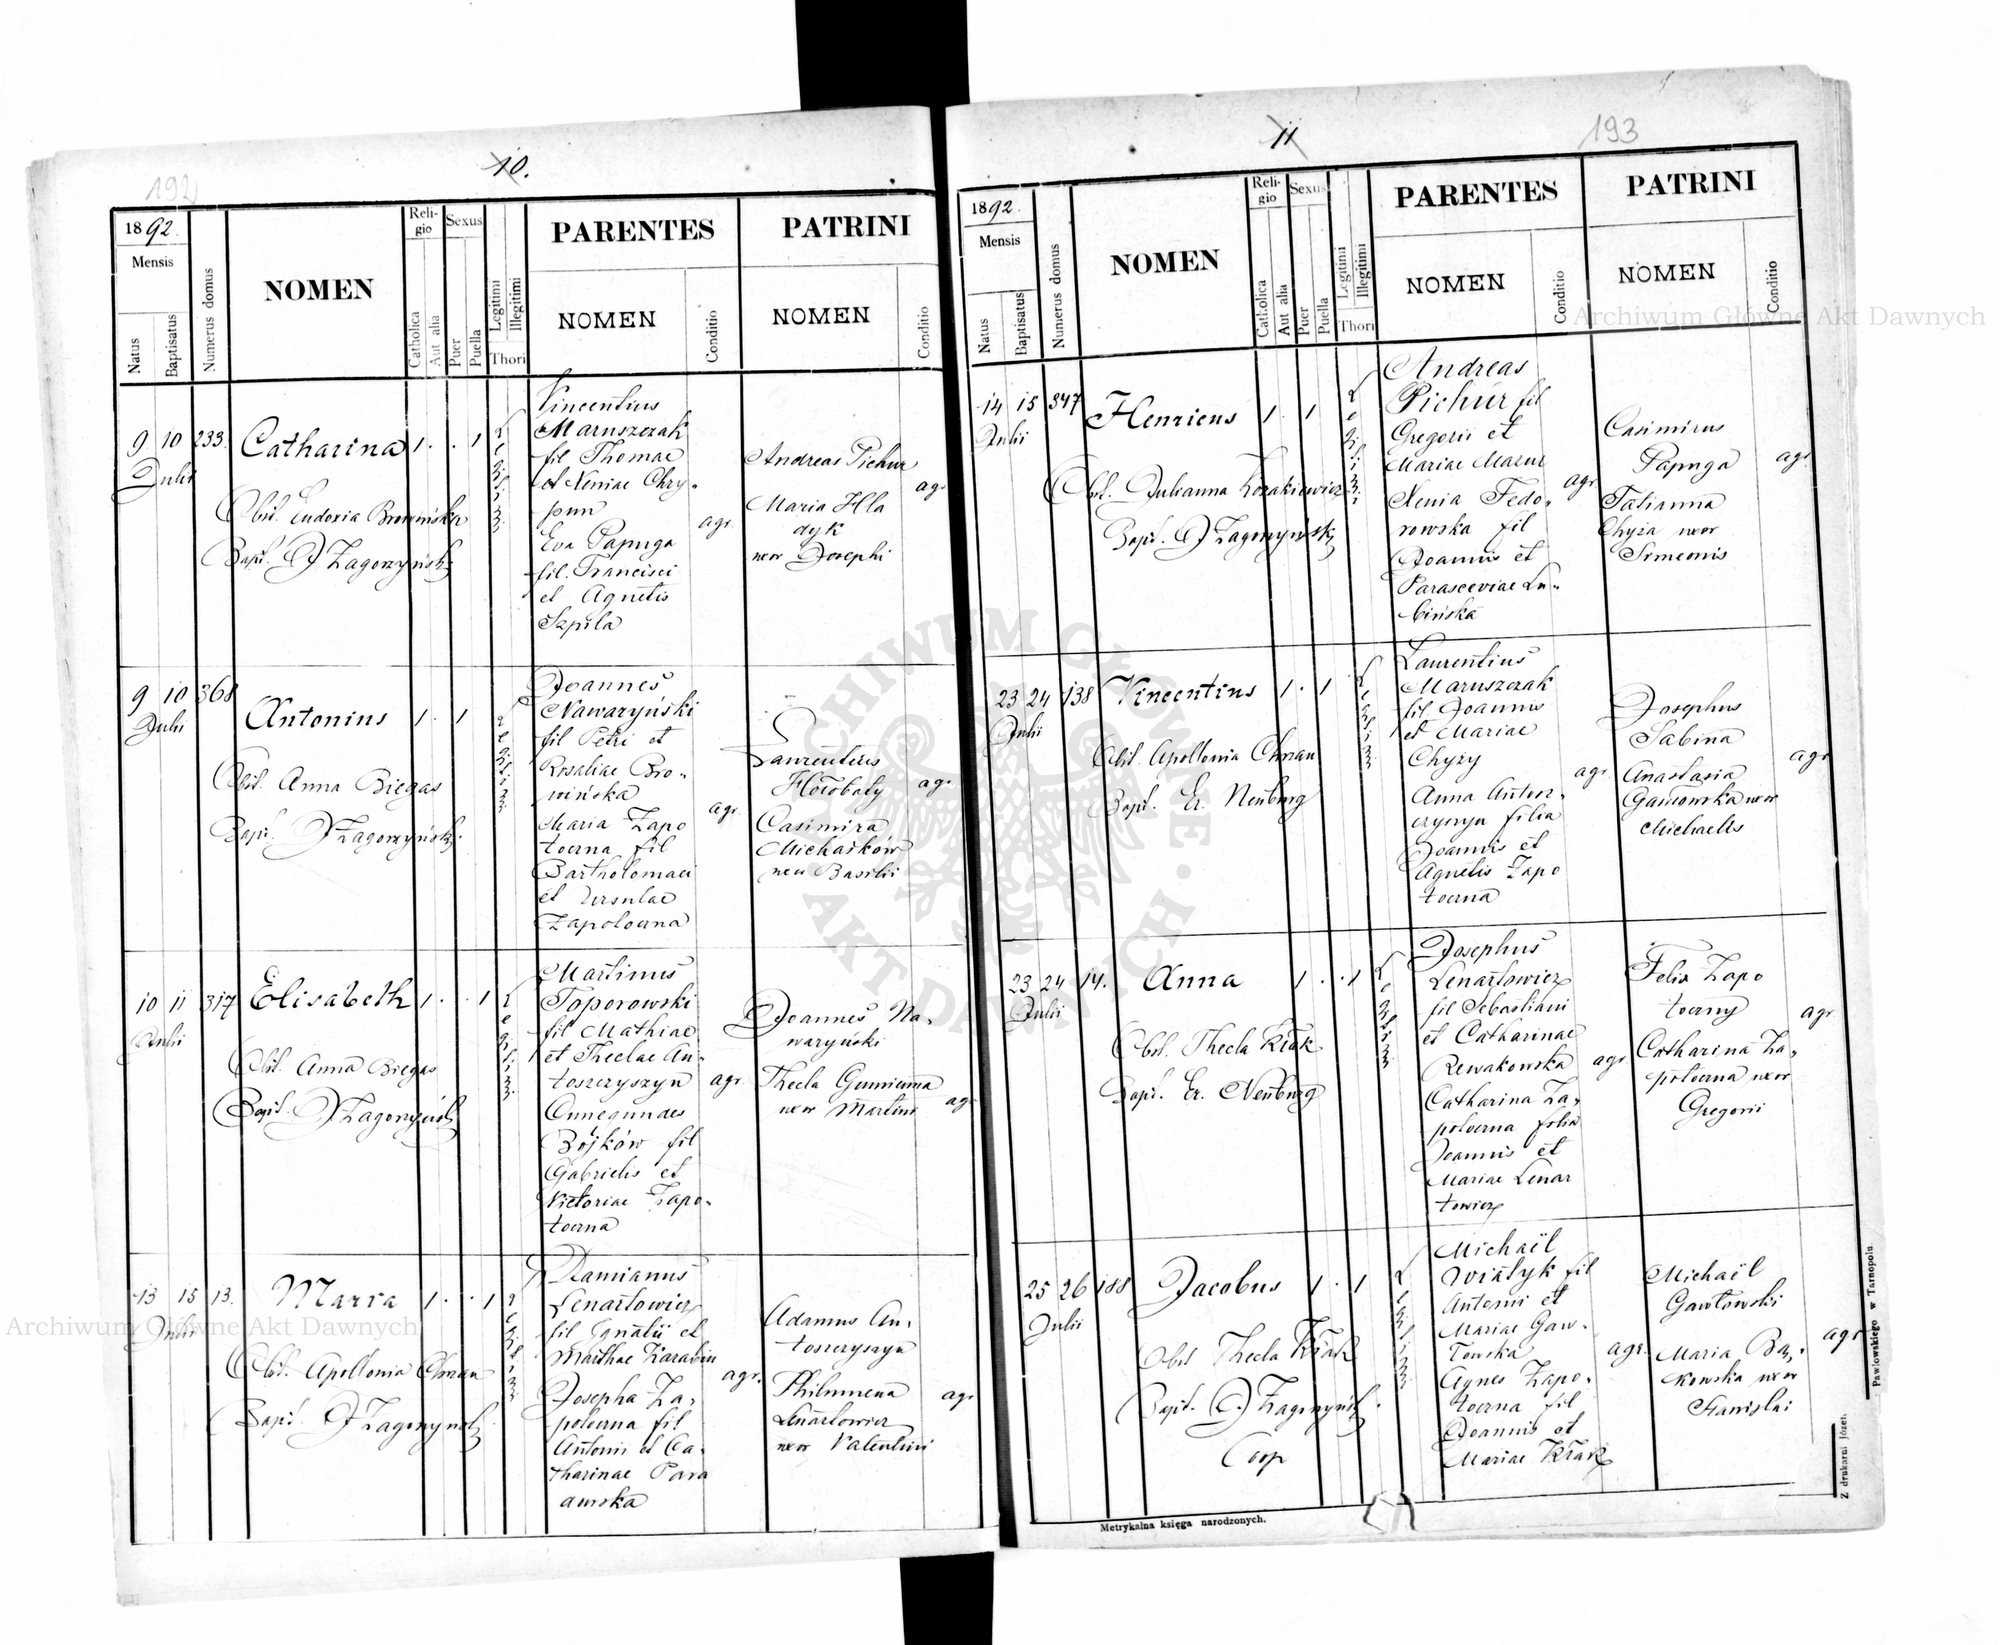 192
10.
1892.
Mensis
Natus
Baptisatus
Numerus domus
NOMEN
Reli-
gio
Catholica
Aut alia
Sexus
Puer
Puella
Legitimi
Illegitimi
Thori
PARENTES
NOMEN
Conditio
PATRINI
NOMEN
Conditio
9 10 233. Catharina 1 . . 1
Julii
Obst. Eudoxia Browińska
Bapt. J Zagorzyński
Legitimi
Vincentius
Maruszczak
fil Thomae
et Xeniae Chry-
pun
Eva Papuga
fil. Francisci
et Agnetis
Szpila
agr.
Andreas Pichur
Maria Hla
dyk
uxor Josephi
agr
9 10 368
Julii
Antonius 1 . 1
Obst. Anna Biegas
Bapt. J Zagorzyński
Joannes
Nawaryński
fil Petri et
Rosaliae Bro-
wińska
Maria Zapo
toczna fil
Bartholomaei
et Ursulae
Zapotoczna
agr.
Laurentius
Hołobaty
Casimira
Michałków
uxor Basilii
agr
10 11 317 Elisabeth 1 . . 1
Julii
Obst. Anna Biegas
Bapt. J Zagorzyński
Martinus
Toporowski
fil Mathiae
et Theclae An-
toszczyszyn
Cunegundes
Bójków fil
Gabrielis et
Victoriae Zapo-
toczna
agr.
Joannes Na-
waryński
Thecla
uxor Martini
agr
13 15 13. Maria 1 . . 1
Julii
Obst. Apollonia Chman
Bapt. J Zagorzyński
Damianus
Lenartowicz
fil Ignatii et
Marthae Karabin
Josepha Za-
potoczna fil
Antonii et Ca-
tharinae Para
dowska
agr.
Adamus An-
toszczyszyn
Philumena
Lenartowicz
uxor Valentini
agr
193
11
1892.
Mensis
Natus
Baptisatus
Numerus domus
NOMEN
Reli-
gio
Catholica
Aut alia
Sexus
Puer
Puella
Legitimi
Illegitimi
Thori
PARENTES
NOMEN
Conditio
PATRINI
NOMEN
Conditio
14 15 347 Henricus 1 . 1
Julii
Obst. Julianna Kozakiewicz
Bapt. J Zagorzyński
Andreas
Pichur fil
Gregorii et
Mariae Mazur
Xenia Fedo-
rowska fil
Joannis et
Parasceviae Lu-
bińska
agr
Casimirus
Papuga
Tatianna
Chyża uxor
Simeonis
agr.
23 24 138 Vincentius 1 . 1
Julii
Obst. Apollonia Chman
Bapt. Er. Neuburg
Laurentius
Maruszczak
fil Joannis
et Mariae
Chyży
Anna Antosz-
czyszyn filia
Joannis et
Agnetis Zapo
toczna
agr
Josephus
Sabina
Anastasia
Gawłowska uxor
Michaelis
agr
23 24 14. Anna 1 . . 1
Julii
Obst. Thecla Kłak
Bapt. Er. Neuburg
Josephus
Lenartowicz
fil Sebastiani
et Catharinae
Rewakowska
Catharina Za-
potoczna filia
Joannis et
Mariae Lenar
towicz
agr
Felix Zapo
toczny
Catharina Za-
potoczna uxor
Gregorii
agr
25 26 188 Jacobus 1 . 1
Julii
Obst Thecla Kłak
Bapt. J Zagorzyński
Coop
Michaël
Wiatyk fil
Antonii et
Mariae Gaw-
łowska
Agnes Zapo-
toczna fil
Joannis et
Mariae Kłak
agr.
Michaël
Gawłowski
Maria Bą-
kowska uxor
Stanislai
agr
Metrykalna księga narodzonych.
Z drukarni Józef. Pawłowskiego w Tarnopolu
Archiwum Główne Akt Dawnych
Archiwum Główne Akt Dawnych